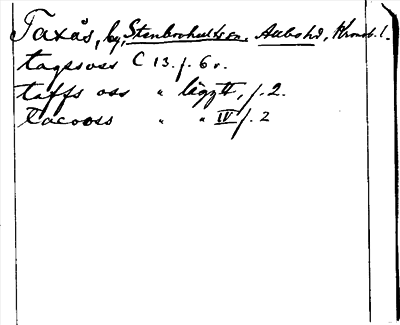 Taxås, by, Stenbrohults sn. Allbo hd, Kronob. l.
tagsoss C 13. f. 6 v.
taffs oss " läggtt, f. 2.
tacooss " " IV f. 2